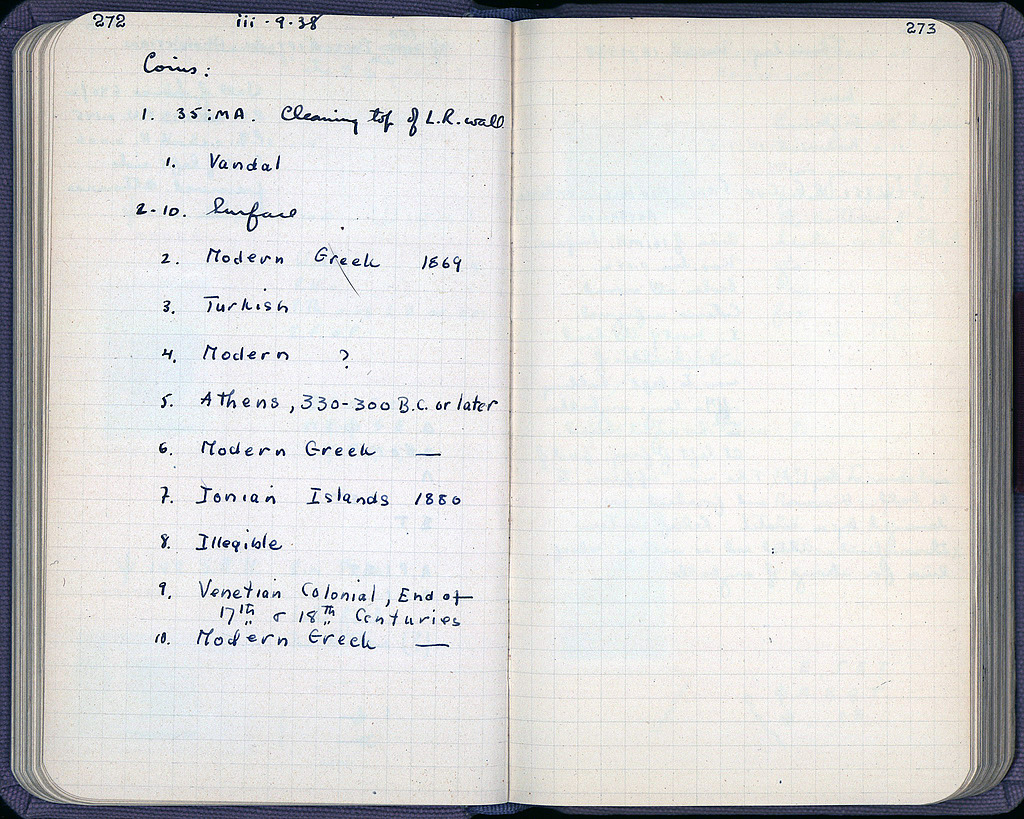 272 iii-9-38
Coins:
1. 35:MA. Cleaning top of L.R. wall
1. Vandal
2-10. Surface
2. Modern Greek 1869
3. Turkish
4. Modern ?
5. Athens, 330-300 B.C. or later
6. Modern Greek —
7. Ionian Islands 1880
8. Illegible
9. Venetian Colonial, End of
17th & 18th Centuries
10. Modern Greek —
273